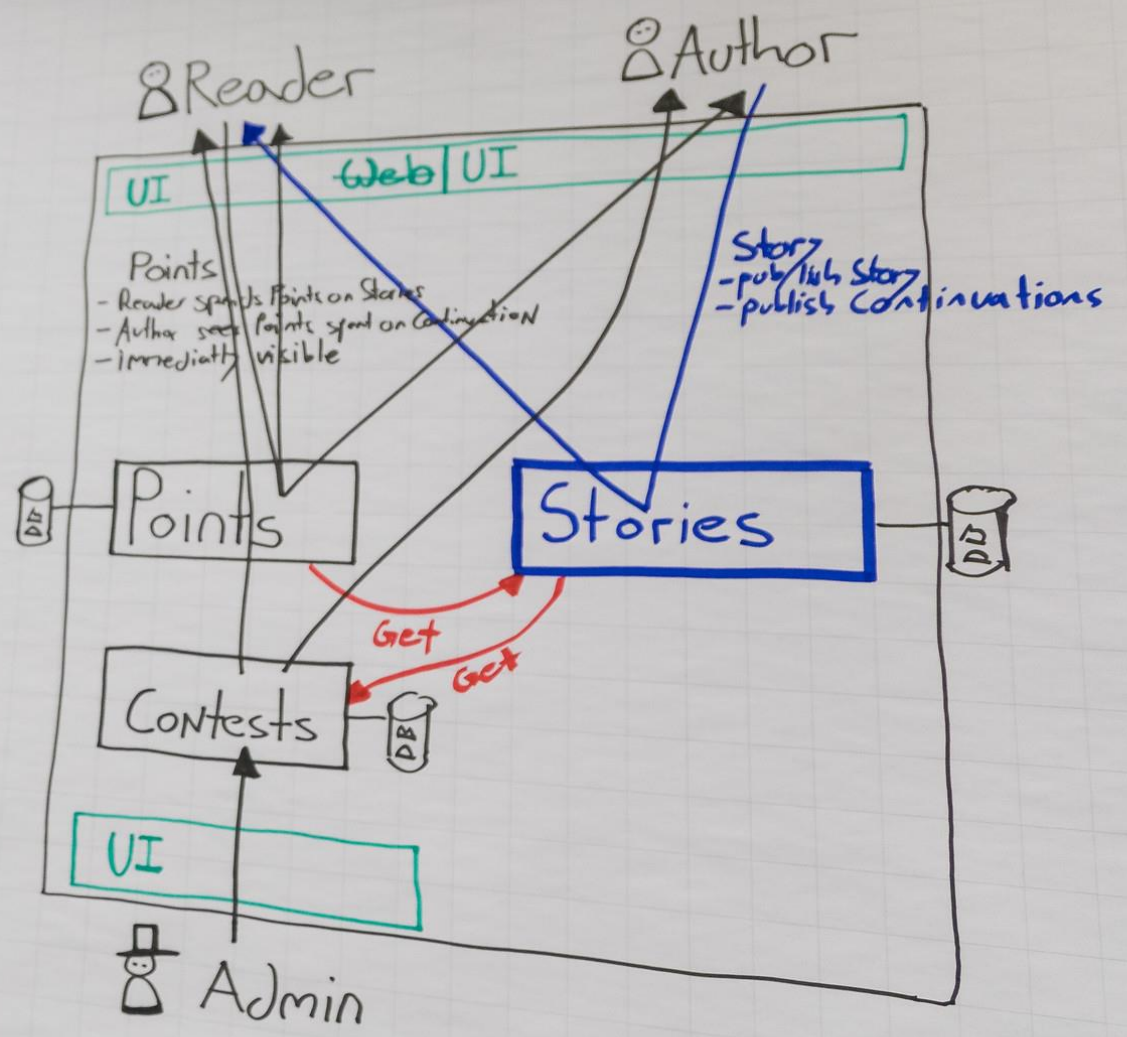 Reader
Author
UI
Web | UI
Points
- Reader spends Points on Stories
- Author sees Points spent on Continuation
- immediatly visible
Story
- publish Story
- publish Continuations
DB
Points
Stories
DB
Get
Get
Contests
DB
UI
Admin